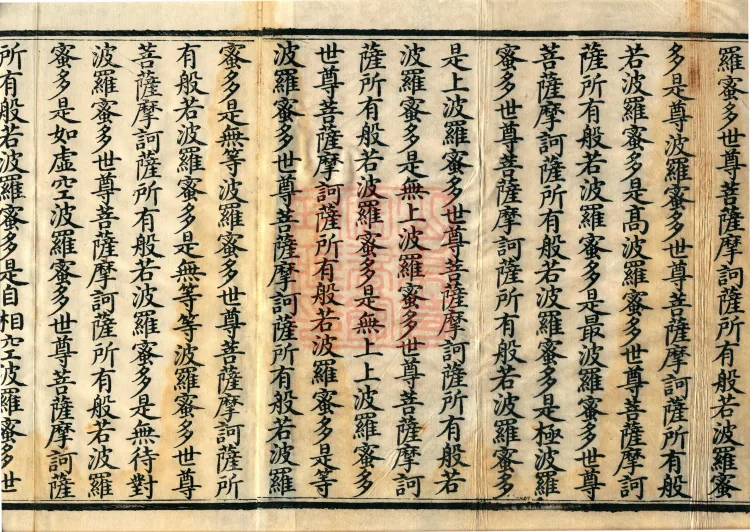 羅蜜多世尊菩薩摩訶薩所有般若波羅蜜
多是尊波羅蜜多世尊菩薩摩訶薩所有般
若波羅蜜多是髙波羅蜜多世尊菩薩摩訶
薩所有般若波羅蜜多是最波羅蜜多世尊
菩薩摩訶薩所有般若波羅蜜多是極波羅
蜜多世尊菩薩摩訶薩所有般若波羅蜜多
是上波羅蜜多世尊菩薩摩訶薩所有般若
波羅蜜多是無上波羅蜜多世尊菩薩摩訶
薩所有般若波羅蜜多是無上上波羅蜜多
世尊菩薩摩訶薩所有般若波羅蜜多是等
波羅蜜多世尊菩薩摩訶薩所有般若波羅
蜜多是無等波羅蜜多世尊菩薩摩訶薩所
有般若波羅蜜多是無等等波羅蜜多世尊
菩薩摩訶薩所有般若波羅蜜多是無待對
波羅蜜多世尊菩薩摩訶薩所有般若波羅
蜜多是如虛空波羅蜜多世尊菩薩摩訶薩
所有般若波羅蜜多是自相空波羅蜜多世